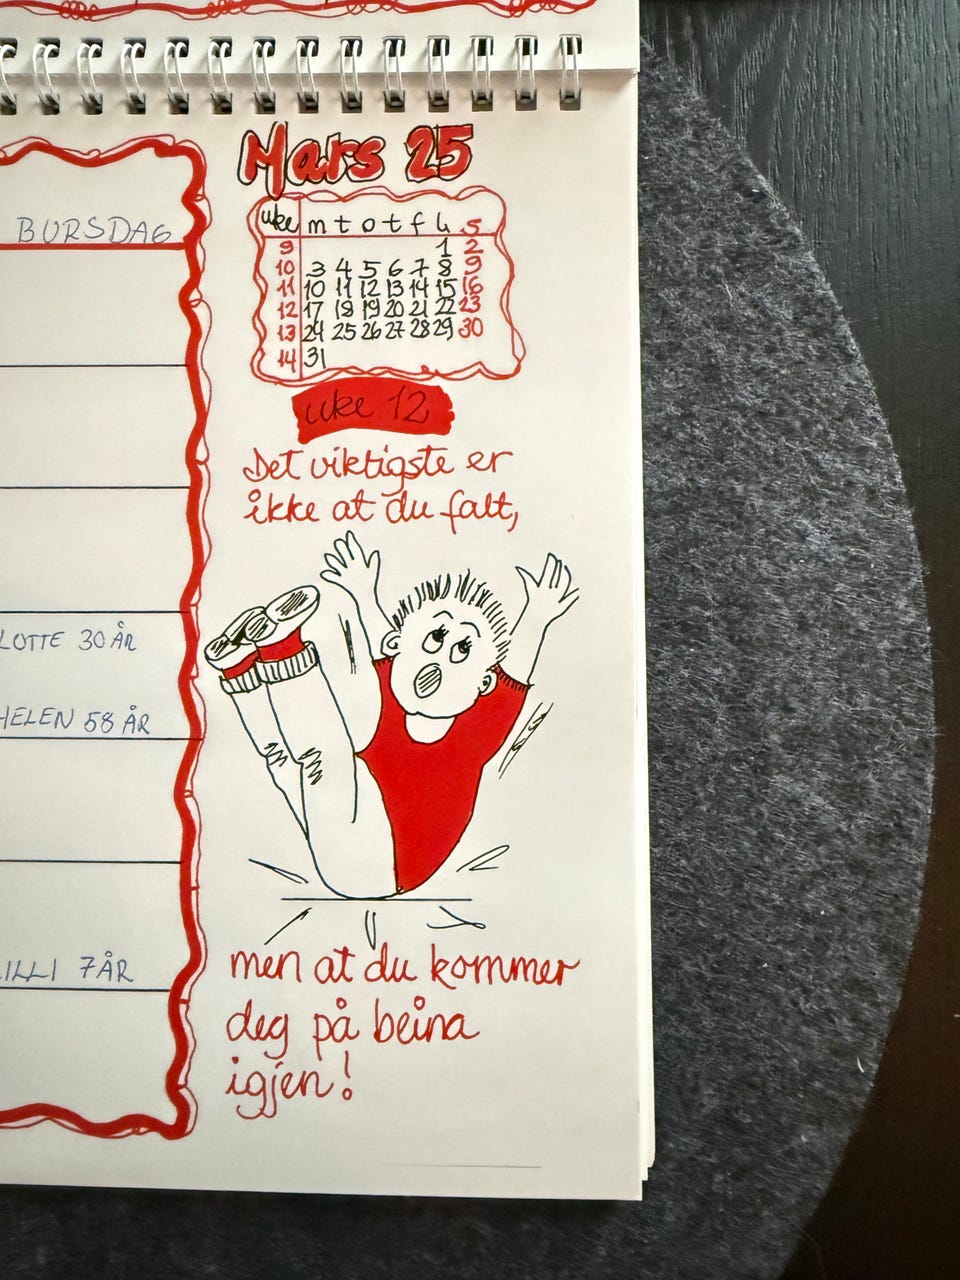 Mars 25
uke m t o t f l s
9 1 2
10 3 4 5 6 7 8 9
11 10 11 12 13 14 15 16
12 17 18 19 20 21 22 23
13 24 25 26 27 28 29 30
14 31
uke 12
Det viktigste er
ikke at du falt,
men at du kommer
deg på beina
igjen!
BURSDAG
LOTTE 30 ÅR
HELEN 58 ÅR
ILLI 7 ÅR